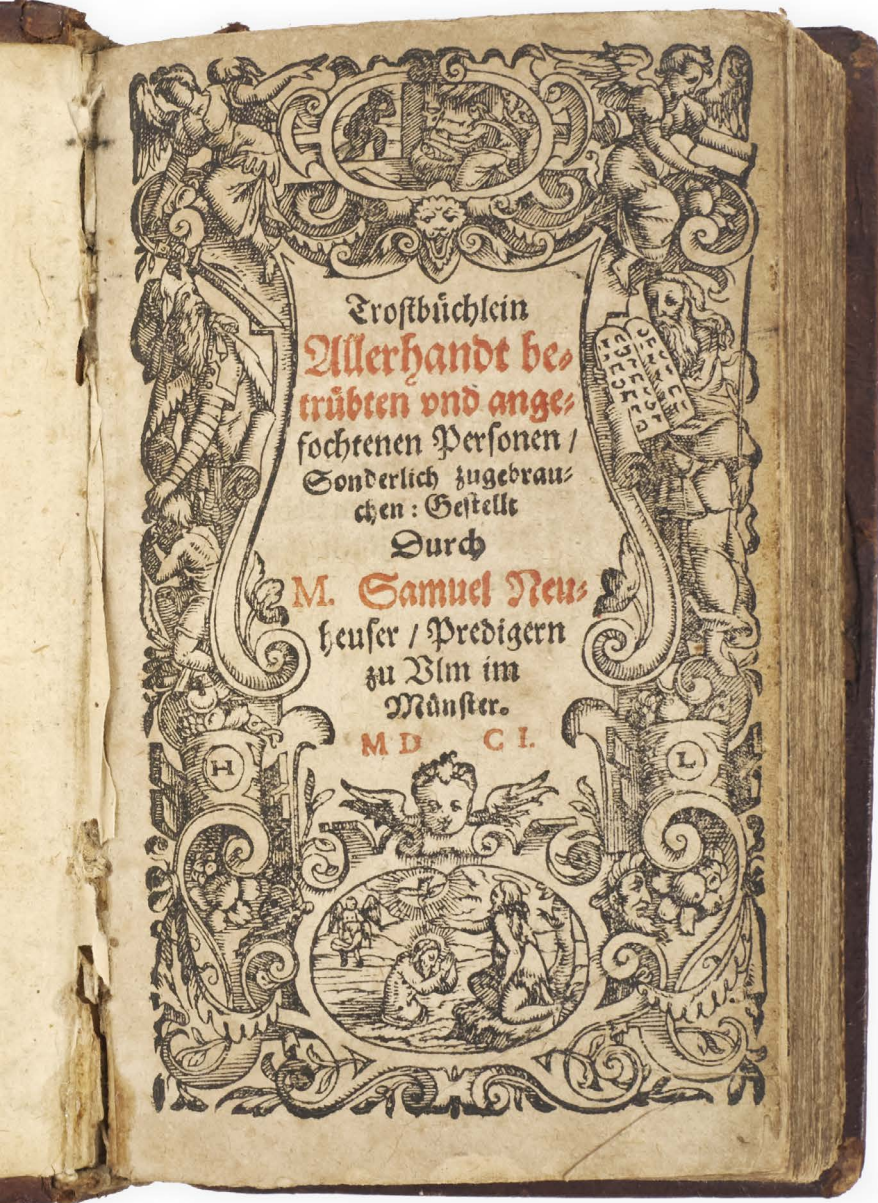 Trostbüchlein
Allerhandt be⸗
trübten vnd ange⸗
fochtenen Personen /
Sonderlich zugebrau⸗
chen: Gestellt
Durch
M. Samuel Neu⸗
heuser / Predigern
zu Vlm im
Münster.
MD CI.
H L